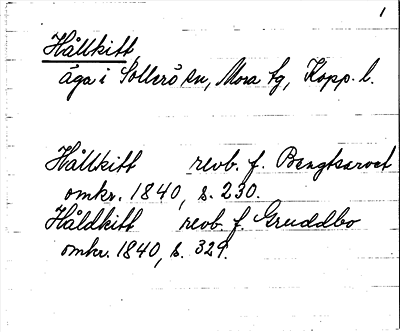 1
Hållkitt
äga i Sollerö sn, Mora tg, Kopp. l.
Hållkitt revb. f. Bengtsarvet
omkr. 1840, s. 230.
Håldkitt revb. f. Gruddbo
omkr. 1840, s. 329.